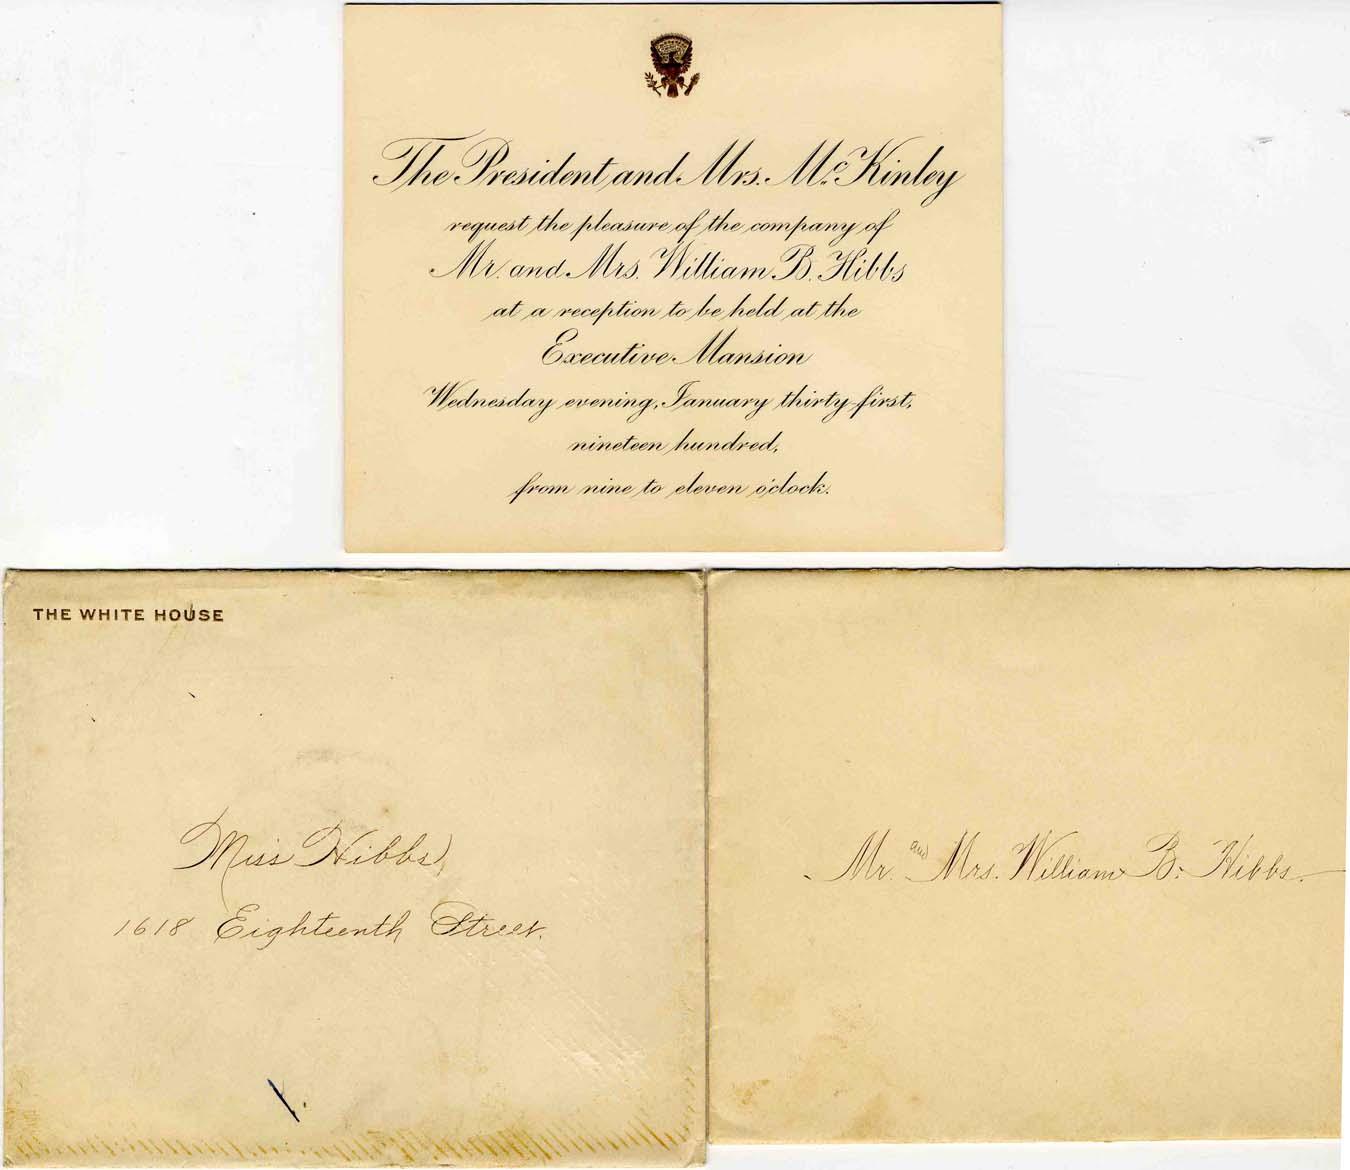 The President and Mrs. McKinley
request the pleasure of the company of
Mr. and Mrs. William B. Hibbs
at a reception to be held at the
Executive Mansion
Wednesday evening, January thirty first,
nineteen hundred,
from nine to eleven o'clock.
THE WHITE HOUSE
Miss Hibbs,
1618 Eighteenth Street.
Mr. and Mrs. William B. Hibbs.